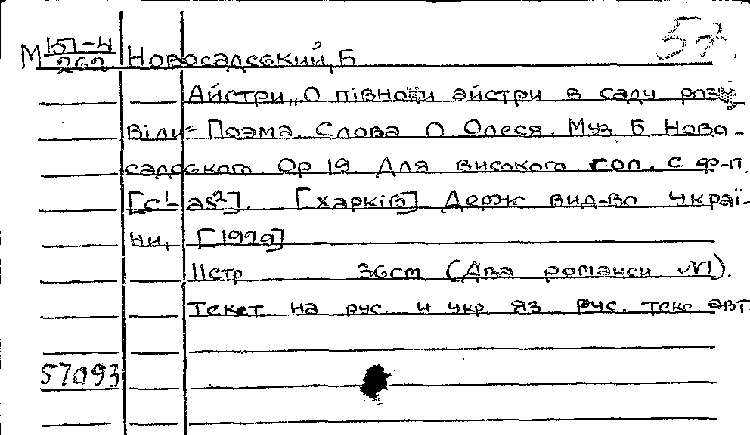 57.
М 157-4/262 Новосадський, Б
Айстри „О півночи айстри в саду розц-
віли" Поэма. Слова О Олеся. Муз Б Ново-
садського. Ор 19 Для високого гол. с ф-п.
[c¹-as²]. [Харків] Держ вид-во Украї-
ни, [1929]
11стр 36cm (Два романси №1).
Текст на рус. и укр яз рус. текс авт.
57093